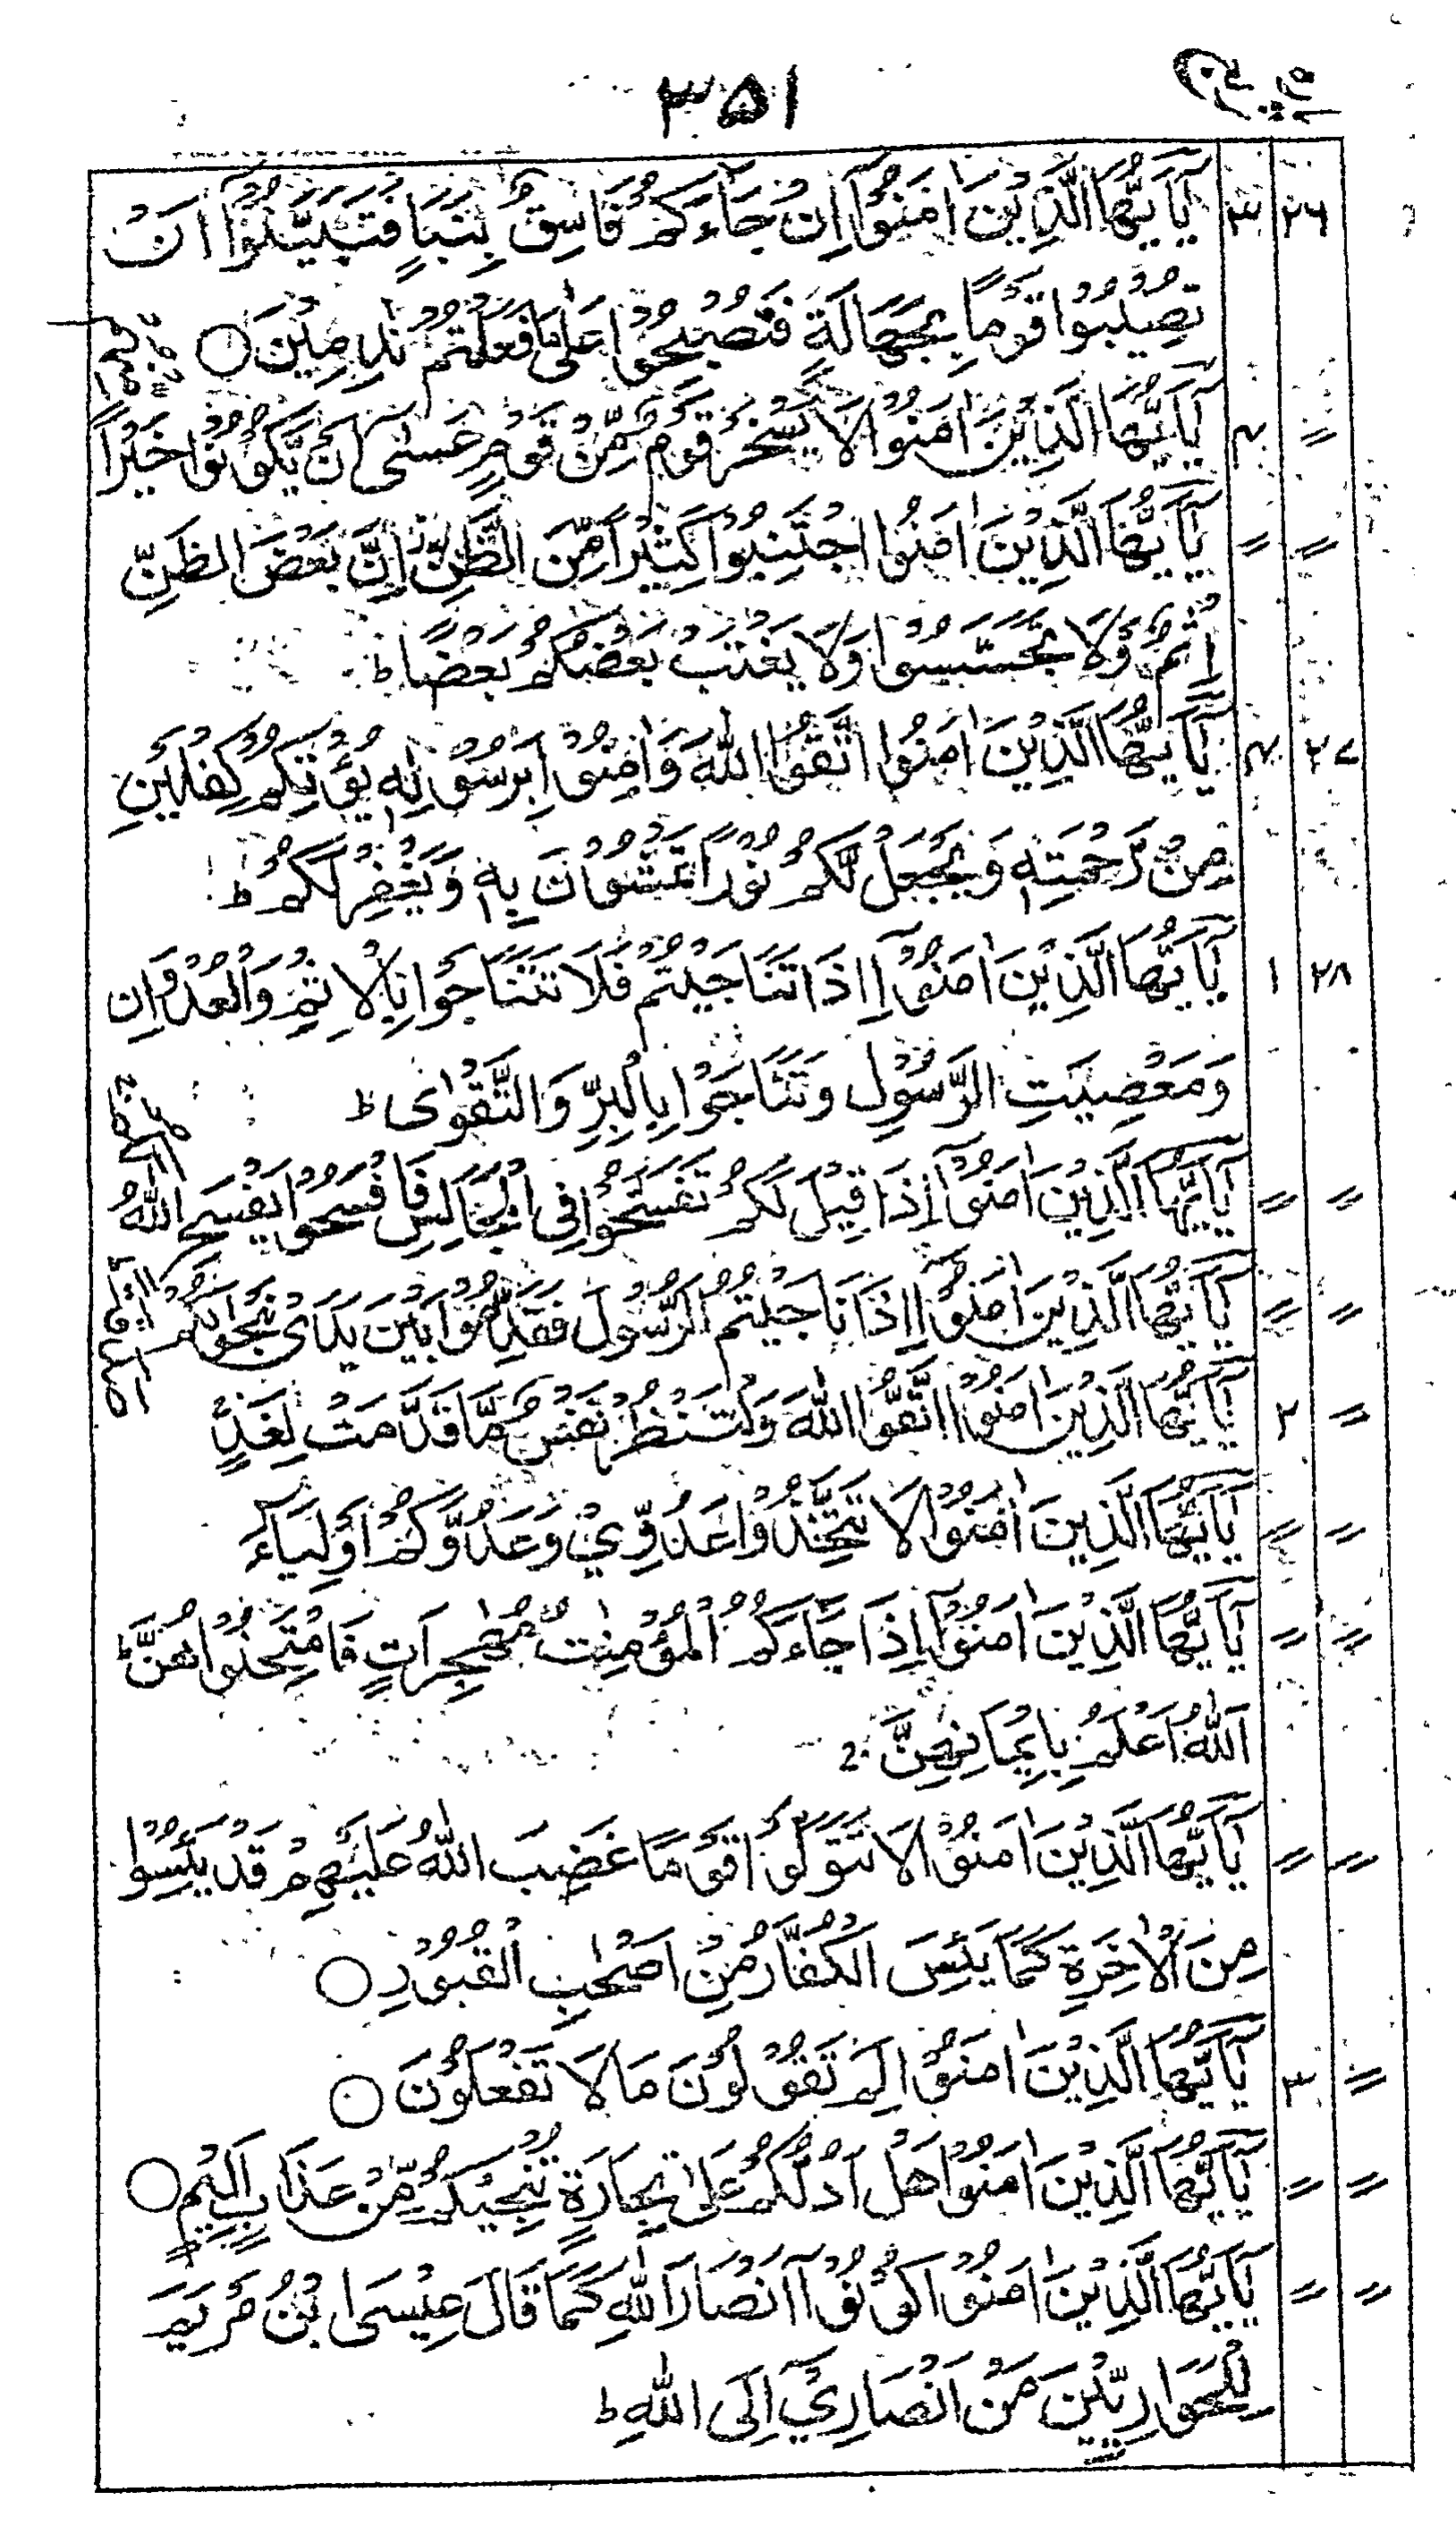 ۳۵۱
۲۶ ۳ يٰۤاَيُّهَا الَّذِيْنَ اٰمَنُوْۤا اِنْ جَآءَكُمْ فَاسِقٌۢ بِنَبَاٍ فَتَبَيَّنُوْۤا اَنْ
تُصِيْبُوْا قَوْمًا بِجَهَالَةٍ فَتُصْبِحُوْا عَلٰى مَا فَعَلْتُمْ نٰدِمِيْنَ ○
〃 ۴ يٰۤاَيُّهَا الَّذِيْنَ اٰمَنُوْا لَا يَسْخَرْ قَوْمٌ مِّنْ قَوْمٍ عَسٰۤى اَنْ يَّكُوْنُوْا خَيْرًا
〃 〃 يٰۤاَيُّهَا الَّذِيْنَ اٰمَنُوا اجْتَنِبُوْا كَثِيْرًا مِّنَ الظَّنِّ اِنَّ بَعْضَ الظَّنِّ
اِثْمٌ وَّلَا تَجَسَّسُوْا وَلَا يَغْتَبْ بَعْضُكُمْ بَعْضًا ط
۲۷ ۴ يٰۤاَيُّهَا الَّذِيْنَ اٰمَنُوا اتَّقُوا اللّٰهَ وَاٰمِنُوْا بِرَسُوْلِهٖ يُؤْتِكُمْ كِفْلَيْنِ
مِنْ رَّحْمَتِهٖ وَيَجْعَلْ لَّكُمْ نُوْرًا تَمْشُوْنَ بِهٖ وَيَغْفِرْ لَكُمْ ط
۲۸ ۱ يٰۤاَيُّهَا الَّذِيْنَ اٰمَنُوْۤا اِذَا تَنَاجَيْتُمْ فَلَا تَتَنَاجَوْا بِالْاِثْمِ وَالْعُدْوَانِ
وَمَعْصِيَتِ الرَّسُوْلِ وَتَنَاجَوْا بِالْبِرِّ وَالتَّقْوٰى ط
〃 〃 يٰۤاَيُّهَا الَّذِيْنَ اٰمَنُوْۤا اِذَا قِيْلَ لَكُمْ تَفَسَّحُوْا فِى الْمَجَالِسِ فَافْسَحُوْا يَفْسَحِ اللّٰهُ
〃 〃 يٰۤاَيُّهَا الَّذِيْنَ اٰمَنُوْۤا اِذَا نَاجَيْتُمُ الرَّسُوْلَ فَقَدِّمُوْا بَيْنَ يَدَىْ نَجْوٰىكُمْ
〃 ۲ يٰۤاَيُّهَا الَّذِيْنَ اٰمَنُوا اتَّقُوا اللّٰهَ وَلْتَنْظُرْ نَفْسٌ مَّا قَدَّمَتْ لِغَدٍ
〃 〃 يٰۤاَيُّهَا الَّذِيْنَ اٰمَنُوْا لَا تَتَّخِذُوْا عَدُوِّيْ وَعَدُوَّكُمْ اَوْلِيَآءَ
〃 〃 يٰۤاَيُّهَا الَّذِيْنَ اٰمَنُوْۤا اِذَا جَآءَكُمُ الْمُؤْمِنٰتُ مُهٰجِرَاتٍ فَامْتَحِنُوْاهُنَّ ط
اَللّٰهُ اَعْلَمُ بِاِيْمَانِهِنَّ
〃 〃 يٰۤاَيُّهَا الَّذِيْنَ اٰمَنُوْا لَا تَتَوَلَّوْا قَوْمًا غَضِبَ اللّٰهُ عَلَيْهِمْ قَدْ يَئِسُوْا
مِنَ الْاٰخِرَةِ كَمَا يَئِسَ الْكُفَّارُ مِنْ اَصْحٰبِ الْقُبُوْرِ ○
〃 ۳ يٰۤاَيُّهَا الَّذِيْنَ اٰمَنُوْا لِمَ تَقُوْلُوْنَ مَا لَا تَفْعَلُوْنَ ○
〃 〃 يٰۤاَيُّهَا الَّذِيْنَ اٰمَنُوْا هَلْ اَدُلُّكُمْ عَلٰى تِجَارَةٍ تُنْجِيْكُمْ مِّنْ عَذَابٍ اَلِيْمٍ ○
〃 〃 يٰۤاَيُّهَا الَّذِيْنَ اٰمَنُوْا كُوْنُوْۤا اَنْصَارَ اللّٰهِ كَمَا قَالَ عِيْسَى ابْنُ مَرْيَمَ
لِلْحَوَارِيّٖنَ مَنْ اَنْصَارِيْۤ اِلَى اللّٰهِ ط